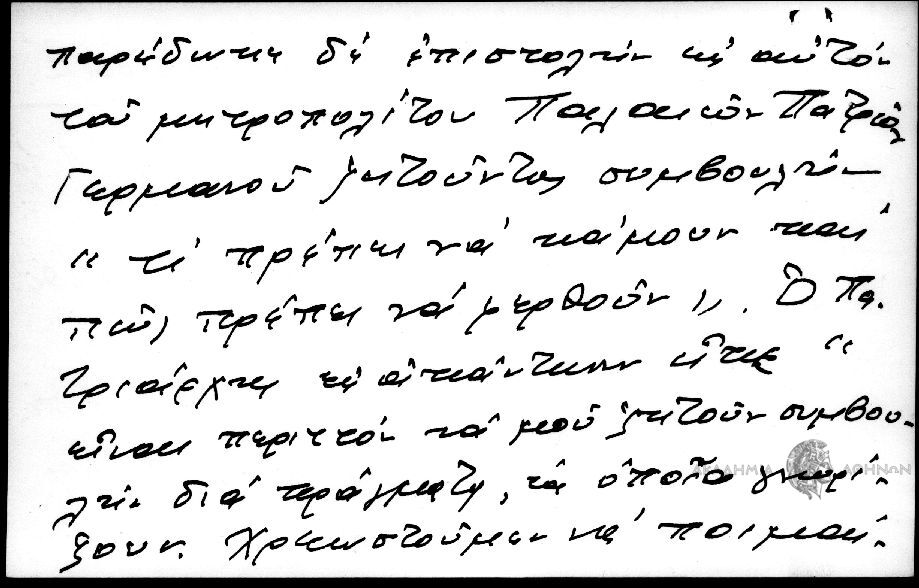 παρέδωκε δέ ἐπιστολήν εἰς αὐτόν
τοῦ μητροπολίτου Παλαιῶν Πατρῶν
Γερμανοῦ ζητοῦντος συμβουλήν
“ τί πρέπει νά κάμουν καί
πῶς πρέπει νά φερθοῦν ”. Ὁ Πα-
τριάρχης εἰς ἀπάντησιν εἶπε “
εἶναι περιττόν νά μοῦ ζητοῦν συμβου-
λήν διά πράγματα, τά ὁποῖα γνωρί-
ζουν. Χρεωστοῦμεν νά ποιμαί-
ΑΚΑΔΗΜΙΑ ΑΘΗΝΩΝ